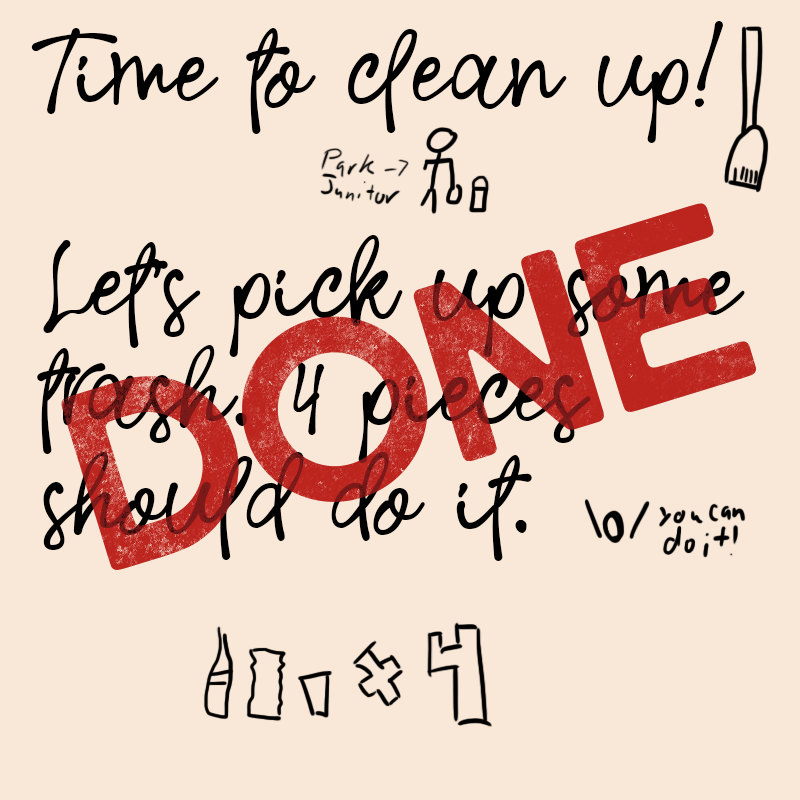 Time to clean up!
Park ->
Junitor
Let's pick up some
trash. 4 pieces
should do it.
DONE
\o/ you can
do it!
x 4